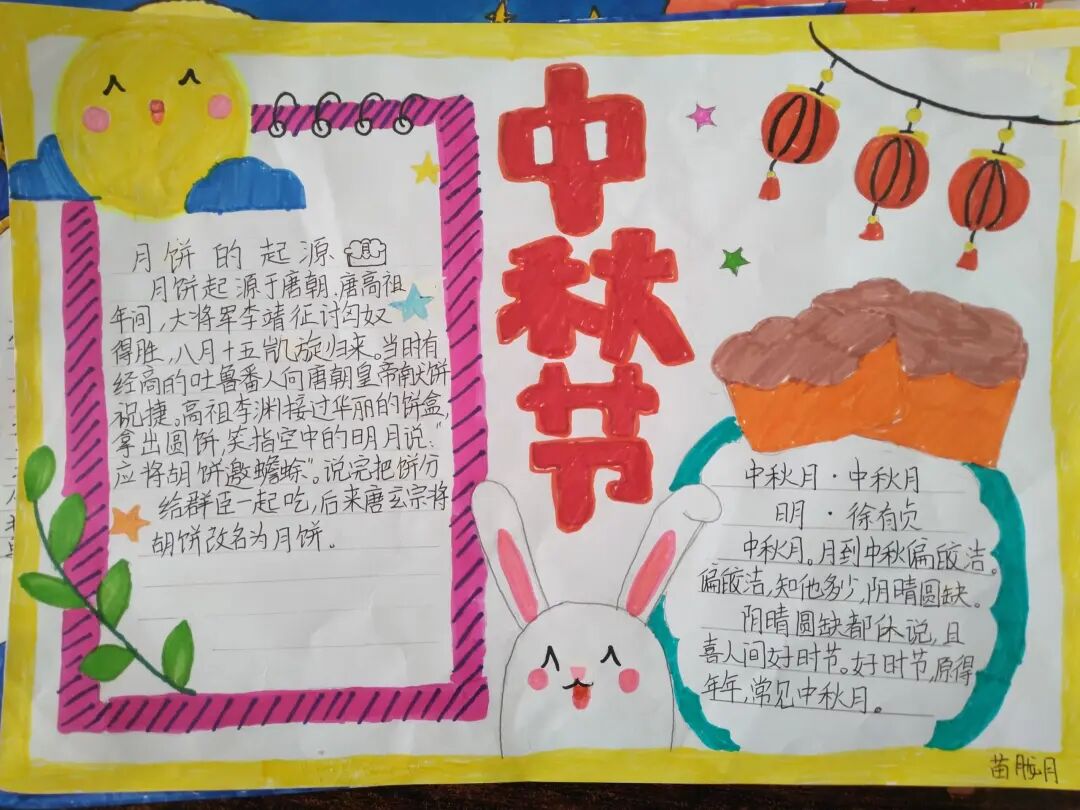 中秋节
月饼的起源
月饼起源于唐朝、唐高祖
年间,大将军李靖征讨匈奴
得胜,八月十五凯旋归来。当时有
经高的吐鲁番人向唐朝皇帝献饼
祝捷。高祖李渊接过华丽的饼盒,
拿出圆饼,笑指空中的明月说:“
应将胡饼邀蟾蜍”。说完把饼分
给群臣一起吃,后来唐玄宗将
胡饼改名为月饼。
中秋月·中秋月
明·徐有贞
中秋月。月到中秋偏皎洁。
偏皎洁,知他多少,阴晴圆缺。
阴晴圆缺都休说,且
喜人间好时节。好时节,原得
年年,常见中秋月。